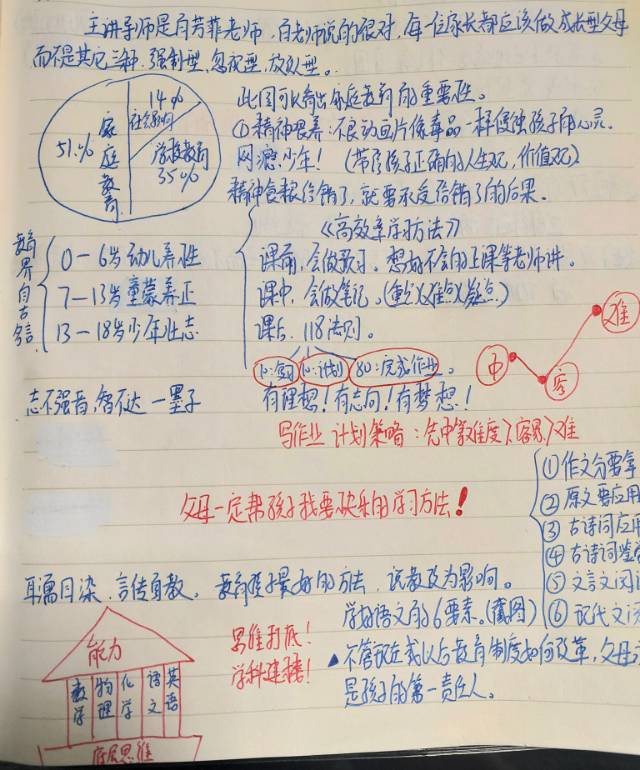 主讲导师是肖芳菲老师，肖老师说的很对，每一位家长都应该做成长型父母
而不是其它三种：强制型，忽视型，放纵型。
51% 家庭教育
14%
社会影响
学校教育
35%
此图可以看出家庭教育的重要性。
①精神喂养：不良动画片像毒品一样侵蚀孩子的心灵.
网瘾少年！（带领孩子正确的人生观，价值观）
精神食粮给错了，就要承受给错了的后果.
《高效率学习方法》
教育界自古名言
0－6岁幼儿养性
7－13岁童蒙养正
13－18岁少年立志
课前，会做预习。想好不会的上课等老师讲。
课中，会做笔记。（重点/难点/疑点）
课后，118法则。
10:复习 10:计划 80:完成作业。
中
容
难
志不强者，智不达 一墨子
有理想！有志向！有梦想！
写作业 计划策略：先中等难度＞容易＞难
父母一定帮孩子找要快乐的学习方法！
①作文分要拿
②原文要应用
③古诗词应用
④古诗词鉴
⑤文言文阅
⑥现代文
耳濡目染，言传身教。教育孩子最好的方法，说教改为影响。
学好语文的6要素。（截图）
能力
数学
物理
化学
语文
英语
底层思维
思维到底！
学科建楼！
▲不管现在或以后教育制度如何改革，父母
是孩子的第一责任人。